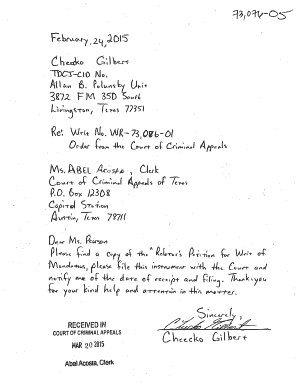 73,074-05
February 24, 2015
Cheeko Gilbert
TDCJ-CID No.
Allan B. Polunsky Unit
3872 FM 350 South
Livingston, Texas 77351
Re: Writ No. WR-73,086-01
Order from the Court of Criminal Appeals
Ms. ABEL Acosta, Clerk
Court of Criminal Appeals of Texas
P.O. Box 12308
Capitol Station
Austin, Texas 78711
Dear Ms. Pearson
Please find a copy of the "Relator's Petition for Writ of
Mandamus, please file this instrument with the Court and
notify me of the date of receipt and filing. Thank you
for your kind help and attention in this matter.
Sincerely,
Cheeko Gilbert
RECEIVED IN
COURT OF CRIMINAL APPEALS
MAR 20 2015
Abel Acosta, Clerk